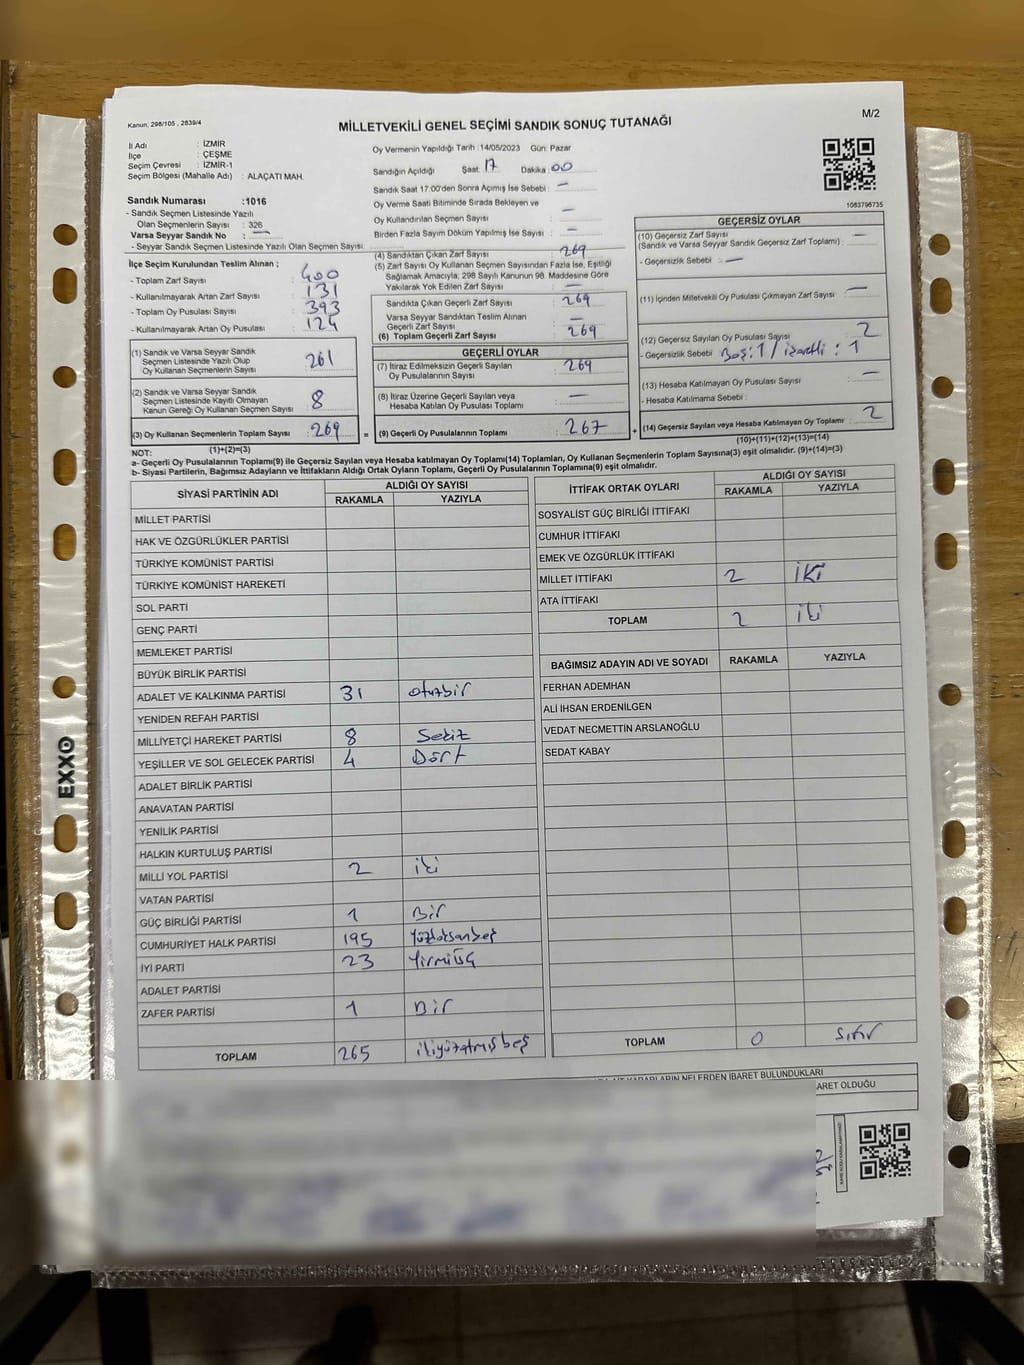 Kanun, 298/105 , 2839/4
MİLLETVEKİLİ GENEL SEÇİMİ SANDIK SONUÇ TUTANAĞI
M/2
İl Adı : İZMİR
İlçe : ÇEŞME
Seçim Çevresi : İZMİR-1
Seçim Bölgesi (Mahalle Adı) : ALAÇATI MAH.
Sandık Numarası :1016
- Sandık Seçmen Listesinde Yazılı
Olan Seçmenlerin Sayısı : 326
Varsa Seyyar Sandık No : —
- Seyyar Sandık Seçmen Listesinde Yazılı Olan Seçmen Sayısı:
Oy Vermenin Yapıldığı Tarih :14/05/2023 Gün: Pazar
Sandığın Açıldığı Saat: 17 Dakika: 00
Sandık Saat 17:00'den Sonra Açımış İse Sebebi : —
Oy Verme Saati Bitiminde Sırada Bekleyen ve
Oy Kullandırılan Seçmen Sayısı : —
Birden Fazla Sayım Döküm Yapılmış İse Sayısı : —
1083796735
İlçe Seçim Kurulundan Teslim Alınan ;
- Toplam Zarf Sayısı : 400
- Kullanılmayarak Artan Zarf Sayısı : 131
- Toplam Oy Pusulası : 393
- Kullanılmayarak Artan Oy Pusulası : 124
(1) Sandık ve Varsa Seyyar Sandık
Seçmen Listesinde Yazılı Olup
Oy Kullanan Seçmenlerin Sayısı : 261
(2) Sandık ve Varsa Seyyar Sandık
Seçmen Listesinde Kayıtlı Olmayan
Kanun Gereği Oy Kullanan Seçmen Sayısı : 8
(3) Oy Kullanan Seçmenlerin Toplam Sayısı : 269
(1)+(2)=(3)
(4) Sandıktan Çıkan Zarf Sayısı : 269
(5) Zarf Sayısı Oy Kullanan Seçmen Sayısından Fazla İse, Eşitliği
Sağlamak Amacıyla; 298 Sayılı Kanunun 98. Maddesine Göre
Yakılarak Yok Edilen Zarf Sayısı : —
Sandıkta Çıkan Geçerli Zarf Sayısı : 269
Varsa Seyyar Sandıktan Teslim Alınan
Geçerli Zarf Sayısı : —
(6) Toplam Geçerli Zarf Sayısı : 269
GEÇERLİ OYLAR
(7) İtiraz Edilmeksizin Geçerli Sayılan
Oy Pusulalarının Sayısı : 269
(8) İtiraz Üzerine Geçerli Sayılan veya
Hesaba Katılan Oy Pusulası Toplamı : —
= (9) Geçerli Oy Pusulalarının Toplamı : 267 +
GEÇERSİZ OYLAR
(10) Geçersiz Zarf Sayısı
(Sandık ve Varsa Seyyar Sandık Geçersiz Zarf Toplamı) : —
- Geçersizlik Sebebi : —
(11) İçinden Milletvekili Oy Pusulası Çıkmayan Zarf Sayısı : —
(12) Geçersiz Sayılan Oy Pusulası Sayısı : 2
- Geçersizlik Sebebi Boş:1 / işaretli : 1
(13) Hesaba Katılmayan Oy Pusulası Sayısı : —
- Hesaba Katılmama Sebebi :
(14) Geçersiz Sayılan veya Hesaba Katılmayan Oy Toplamı : 2
(10)+(11)+(12)+(13)=(14)
NOT:
a- Geçerli Oy Pusulalarının Toplamı(9) ile Geçersiz Sayılan veya Hesaba Katılmayan Oy Toplamı(14) Toplamları, Oy Kullanan Seçmenlerin Toplam Sayısına(3) eşit olmalıdır. (9)+(14)=(3)
b- Siyasi Partilerin, Bağımsız Adayların ve İttifakların Aldığı Ortak Oyların Toplamı, Geçerli Oy Pusulalarının Toplamına(9) eşit olmalıdır.
SİYASİ PARTİNİN ADI ALDIĞI OY SAYISI
RAKAMLA YAZIYLA
MİLLET PARTİSİ
HAK VE ÖZGÜRLÜKLER PARTİSİ
TÜRKİYE KOMÜNİST PARTİSİ
TÜRKİYE KOMÜNİST HAREKETİ
SOL PARTİ
GENÇ PARTİ
MEMLEKET PARTİSİ
BÜYÜK BİRLİK PARTİSİ
ADALET VE KALKINMA PARTİSİ 31 otuzbir
YENİDEN REFAH PARTİSİ
MİLLİYETÇİ HAREKET PARTİSİ 8 Sekiz
YEŞİLLER VE SOL GELECEK PARTİSİ 4 Dört
ADALET BİRLİK PARTİSİ
ANAVATAN PARTİSİ
YENİLİK PARTİSİ
HALKIN KURTULUŞ PARTİSİ
MİLLİ YOL PARTİSİ 2 iki
VATAN PARTİSİ
GÜÇ BİRLİĞİ PARTİSİ 1 Bir
CUMHURİYET HALK PARTİSİ 195 Yüzdoksanbeş
İYİ PARTİ 23 Yirmiüç
ADALET PARTİSİ
ZAFER PARTİSİ 1 Bir
TOPLAM 265 ikiyüzatmışbeş
İTTİFAK ORTAK OYLARI ALDIĞI OY SAYISI
RAKAMLA YAZIYLA
SOSYALİST GÜÇ BİRLİĞİ İTTİFAKI
CUMHUR İTTİFAKI
EMEK VE ÖZGÜRLÜK İTTİFAKI
MİLLET İTTİFAKI 2 İKİ
ATA İTTİFAKI
TOPLAM 2 iki
BAĞIMSIZ ADAYIN ADI VE SOYADI RAKAMLA YAZIYLA
FERHAN ADEMHAN
ALİ İHSAN ERDENİLGEN
VEDAT NECMETTİN ARSLANOĞLU
SEDAT KABAY
TOPLAM 0 Sıfır
KARARLARIN NELERDEN İBARET BULUNDUKLARI
ARET OLDUĞU
EXXO